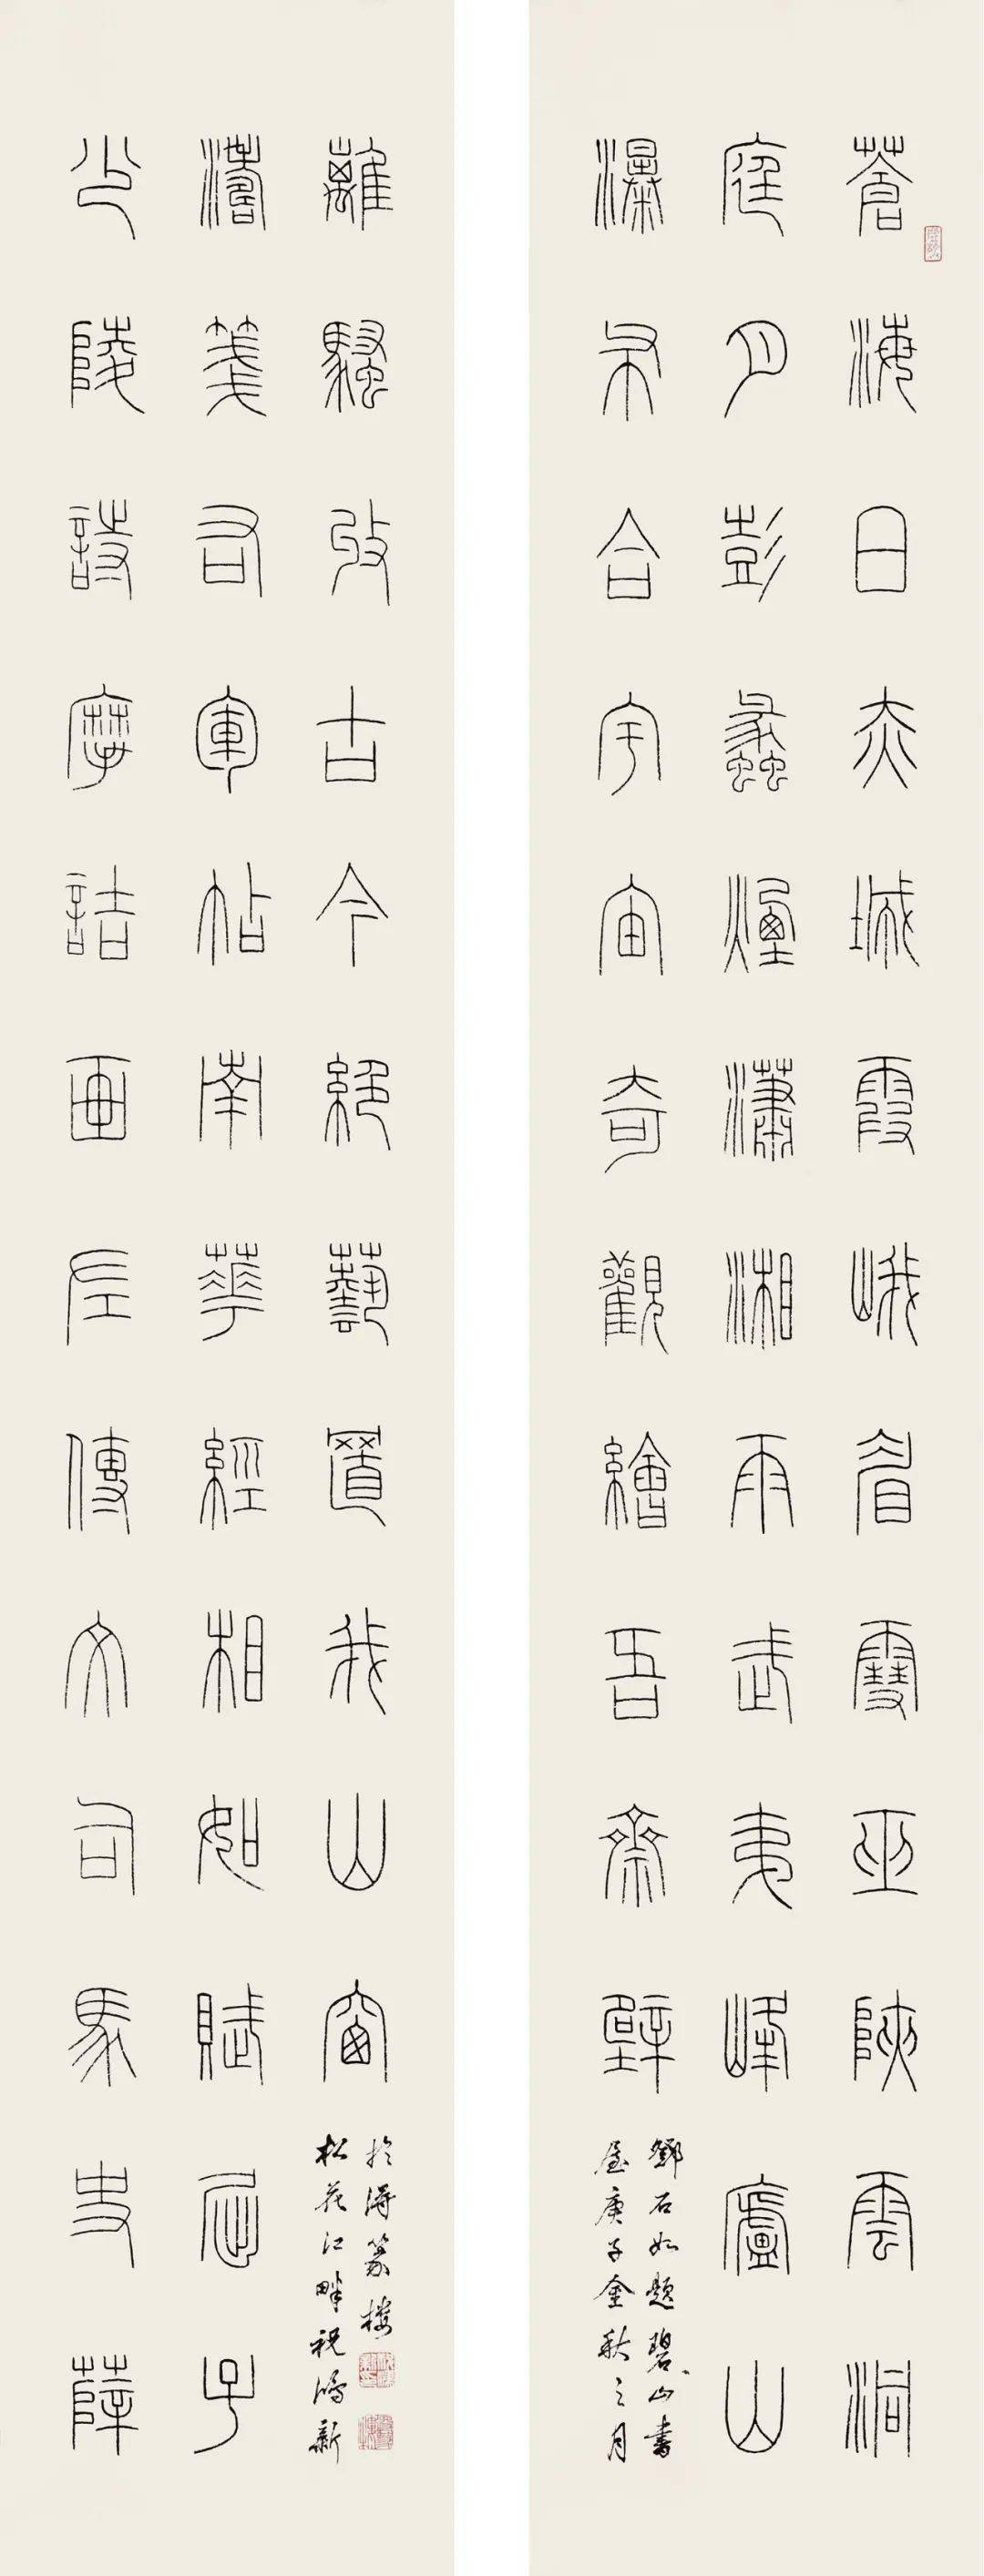 蒼海日赤城霞峨眉雪巫陜雲洞
庭月彭蠡煙瀟湘雨武夷峰廬山
瀑布合宇宙奇觀繪吾齋壁
鄧石如題碧山書
屋庚子金秋之月
少陵詩摩詰畫左傳文司馬史薛
濤箋右軍帖南華經相如賦屈子
離騷收古今絕藝置我山窗
松花江畔祝鴻新
於得篆樓